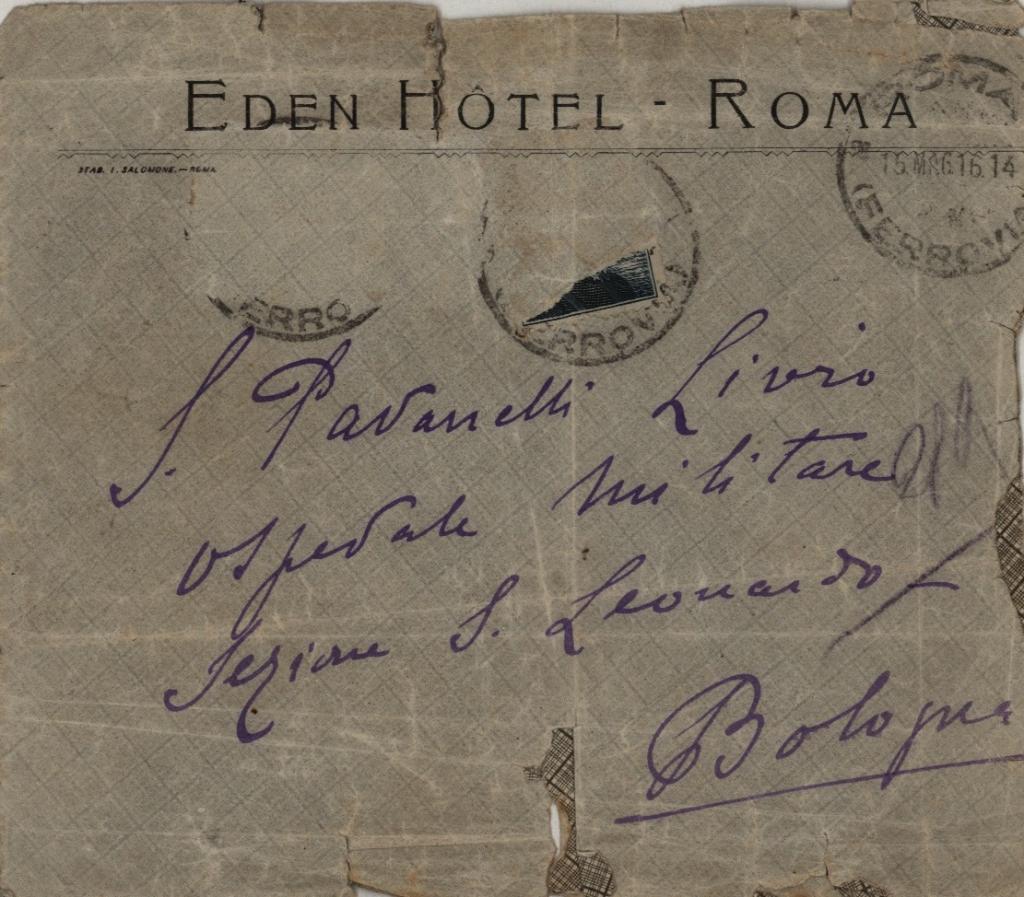 EDEN HÔTEL - ROMA
STAB. I. SALOMONE. — ROMA
ROMA
15.MAG.16.14
(FERROVIA)
ERRO
ERROVIA)
S. Pavanelli Livio
ospedale militare
Sezione S. Leonardo
Bologna